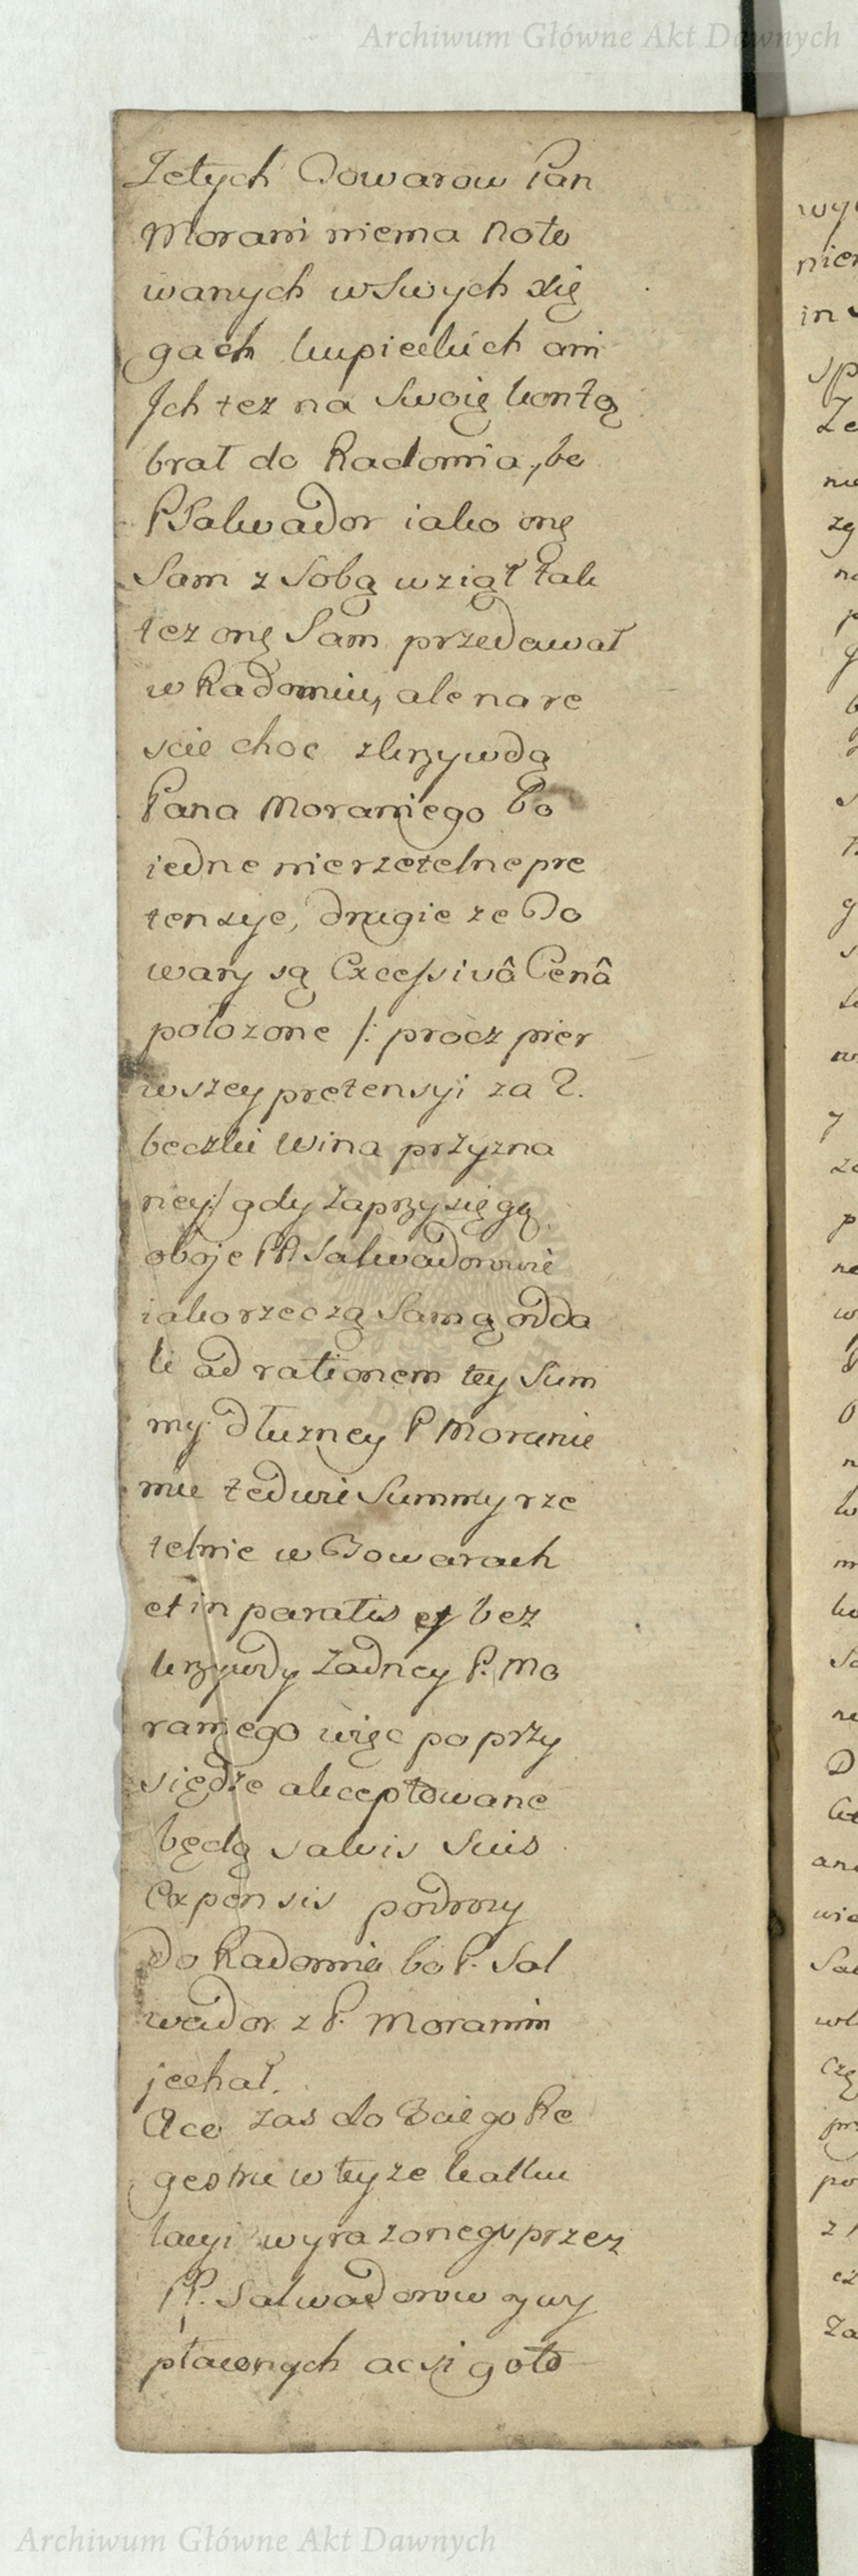 Archiwum Główne Akt Dawnych
Zetych Towarow Pan
Morani niema Noto
wanych w Swych xię
gach kupieckich ani
Ich tez na Swoię kontę
brał do Radomia, bo
P Salwador iako onę
Sam z Sobą wziął tak
tez onę Sam przedawał
w Radomiu, ale na re
scie choc z krzywdą
Pana Moraniego bo
iedne nierzetelne pre
tensye, drugie ze To
wary są Excessivâ Cenâ
połozone /: procz pier
wszey pretensyi za 2.
beczki Wina przyzna
ney:/ gdy zaprzysięgą
oboje PP. Salwadorowie
iako rzeczą Samą odda
li ad rationem tey Sum
my dłuzney P Moranie
mu te dwie Summy rze
telnie w Towarach
et in paratis et bez
krzywdy Zadney P. Mo
raniego więc po przy
siędze akceptowane
będą salvis Suis
Expensis podrozy
do Radomia bo P. Sal
wador z P. Moranim
jechał.
Aco zas do 3ciego Re
gestru w teyze kalku
lacyi wyrazonego przez
PP. Salwadorow zwy
płaconych acsi goto
Archiwum Główne Akt Dawnych